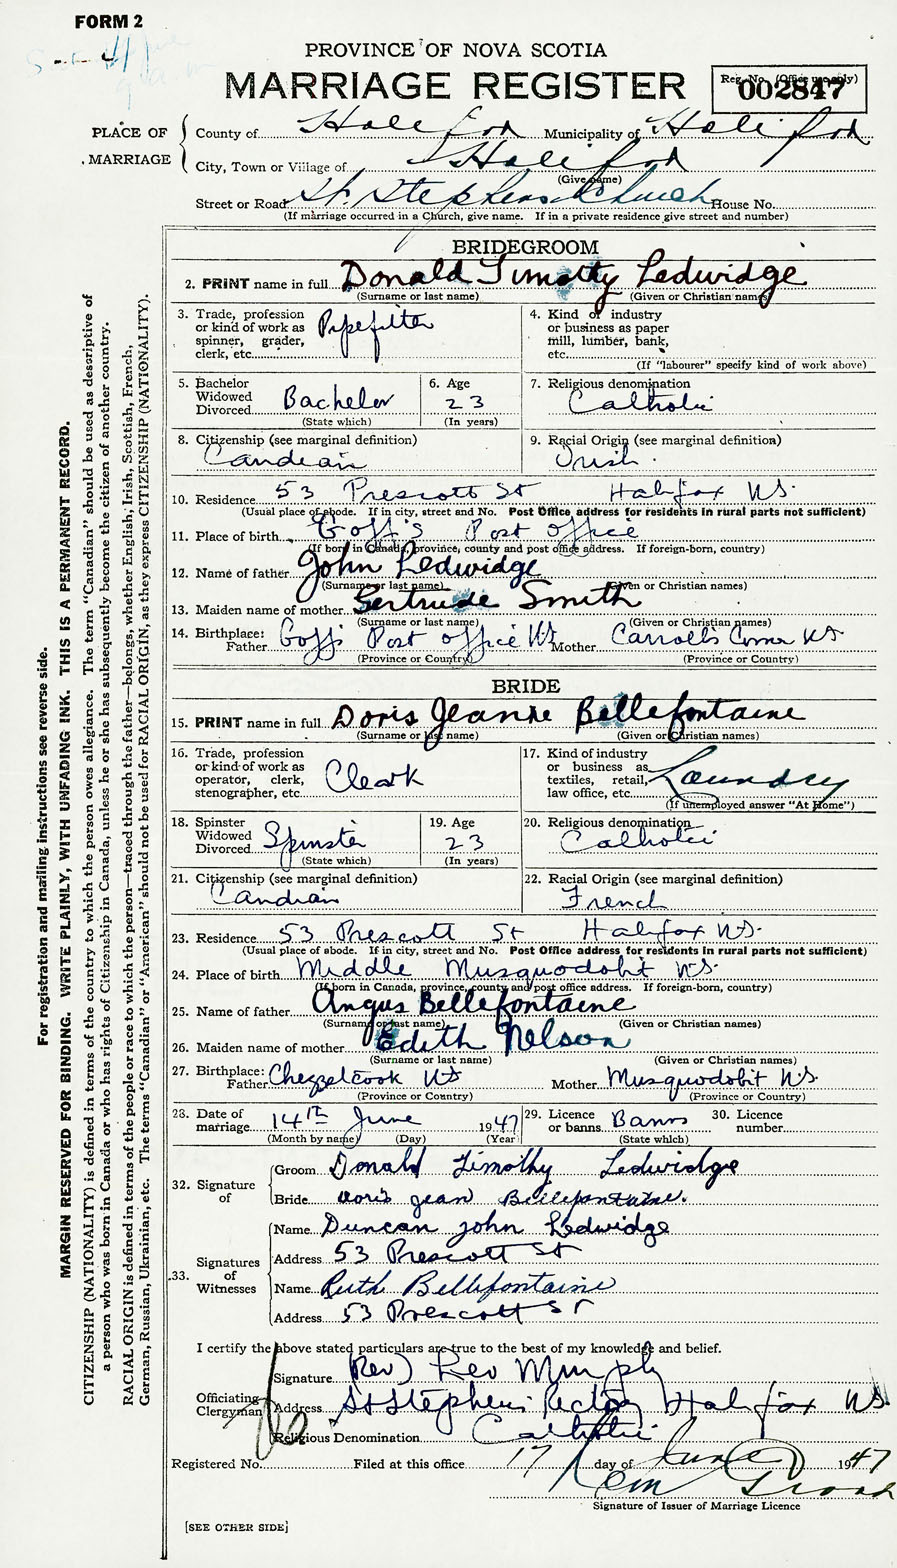 FORM 2
PROVINCE OF NOVA SCOTIA
MARRIAGE REGISTER
Reg. No. (Office use only)
002847
PLACE OF MARRIAGE
County of Halifax Municipality of Halifax
City, Town or Village of Halifax
(Give name)
Street or Road St. Stephens Church House No.
(If marriage occurred in a Church, give name. If in a private residence give street and number)
BRIDEGROOM
2. PRINT name in full Donald Timothy Ledwidge
(Surname or last name) (Given or Christian names)
3. Trade, profession or kind of work as spinner, grader, clerk, etc. Pipefitter
4. Kind of industry or business as paper mill, lumber, bank, etc.
(If "labourer" specify kind of work above)
5. Bachelor Widowed Divorced Bachelor
(State which)
6. Age 23
(In years)
7. Religious denomination Catholic
8. Citizenship (see marginal definition) Candean
9. Racial Origin (see marginal definition) Irish
10. Residence 53 Prescott St Halifax NS.
(Usual place of abode. If in city, street and No. Post Office address for residents in rural parts not sufficient)
11. Place of birth Goff's Post Office
(If born in Canada, province, county and post office address. If foreign-born, country)
12. Name of father John Ledwidge
(Surname or last name) (Given or Christian names)
13. Maiden name of mother Gertrude Smith
(Surname or last name) (Given or Christian names)
14. Birthplace: Father Goffs Post Office NS Mother Carroll's Corner NS
(Province or Country) (Province or Country)
BRIDE
15. PRINT name in full Doris Jeanne Bellefontaine
(Surname or last name) (Given or Christian names)
16. Trade, profession or kind of work as operator, clerk, stenographer, etc. Cleark
17. Kind of industry or business as textiles, retail, law office, etc. Laundry
(If unemployed answer "At Home")
18. Spinster Widowed Divorced Spinster
(State which)
19. Age 23
(In years)
20. Religious denomination Catholic
21. Citizenship (see marginal definition) Candian
22. Racial Origin (see marginal definition) French
23. Residence 53 Prescott St Halifax NS.
(Usual place of abode. If in city, street and No. Post Office address for residents in rural parts not sufficient)
24. Place of birth Middle Musquodobit NS.
(If born in Canada, province, county and post office address. If foreign-born, country)
25. Name of father Angus Bellefontaine
(Surname or last name) (Given or Christian names)
26. Maiden name of mother Edith Nelson
(Surname or last name) (Given or Christian names)
27. Birthplace: Father Chezzelcook NS Mother Musquodobit NS.
(Province or Country) (Province or Country)
28. Date of marriage 14th June 1947
(Month by name) (Day) (Year)
29. Licence or banns Banns
(State which)
30. Licence number
32. Signature of
Groom Donald Timothy Ledwidge
Bride Doris Jean Bellefontaine.
33. Signatures of Witnesses
Name Duncan John Ledwidge
Address 53 Prescott St
Name Ruth Bellefontaine
Address 53 Prescott St
I certify the above stated particulars are true to the best of my knowledge and belief.
Officiating Clergyman
Signature (Rev) Murphy
Address St Stephens Halifax NS
Religious Denomination Catholic
Registered No. Filed at this office 17 day of June 1947
Signature of Issuer of Marriage Licence
[SEE OTHER SIDE]
For registration and mailing instructions see reverse side.
MARGIN RESERVED FOR BINDING. WRITE PLAINLY, WITH UNFADING INK. THIS IS A PERMANENT RECORD.
CITIZENSHIP (NATIONALITY) is defined in terms of the country to which the person owes allegiance. The term "Canadian" should be used as descriptive of
a person who was born in Canada or who has rights of Citizenship in Canada, unless he or she has subsequently become the citizen of another country.
RACIAL ORIGIN is defined in terms of the people or race to which the person—traced through the father—belongs, whether English, Irish, Scottish, French,
German, Russian, Ukrainian, etc. The terms "Canadian" or "American" should not be used for RACIAL ORIGIN, as they express CITIZENSHIP (NATIONALITY).